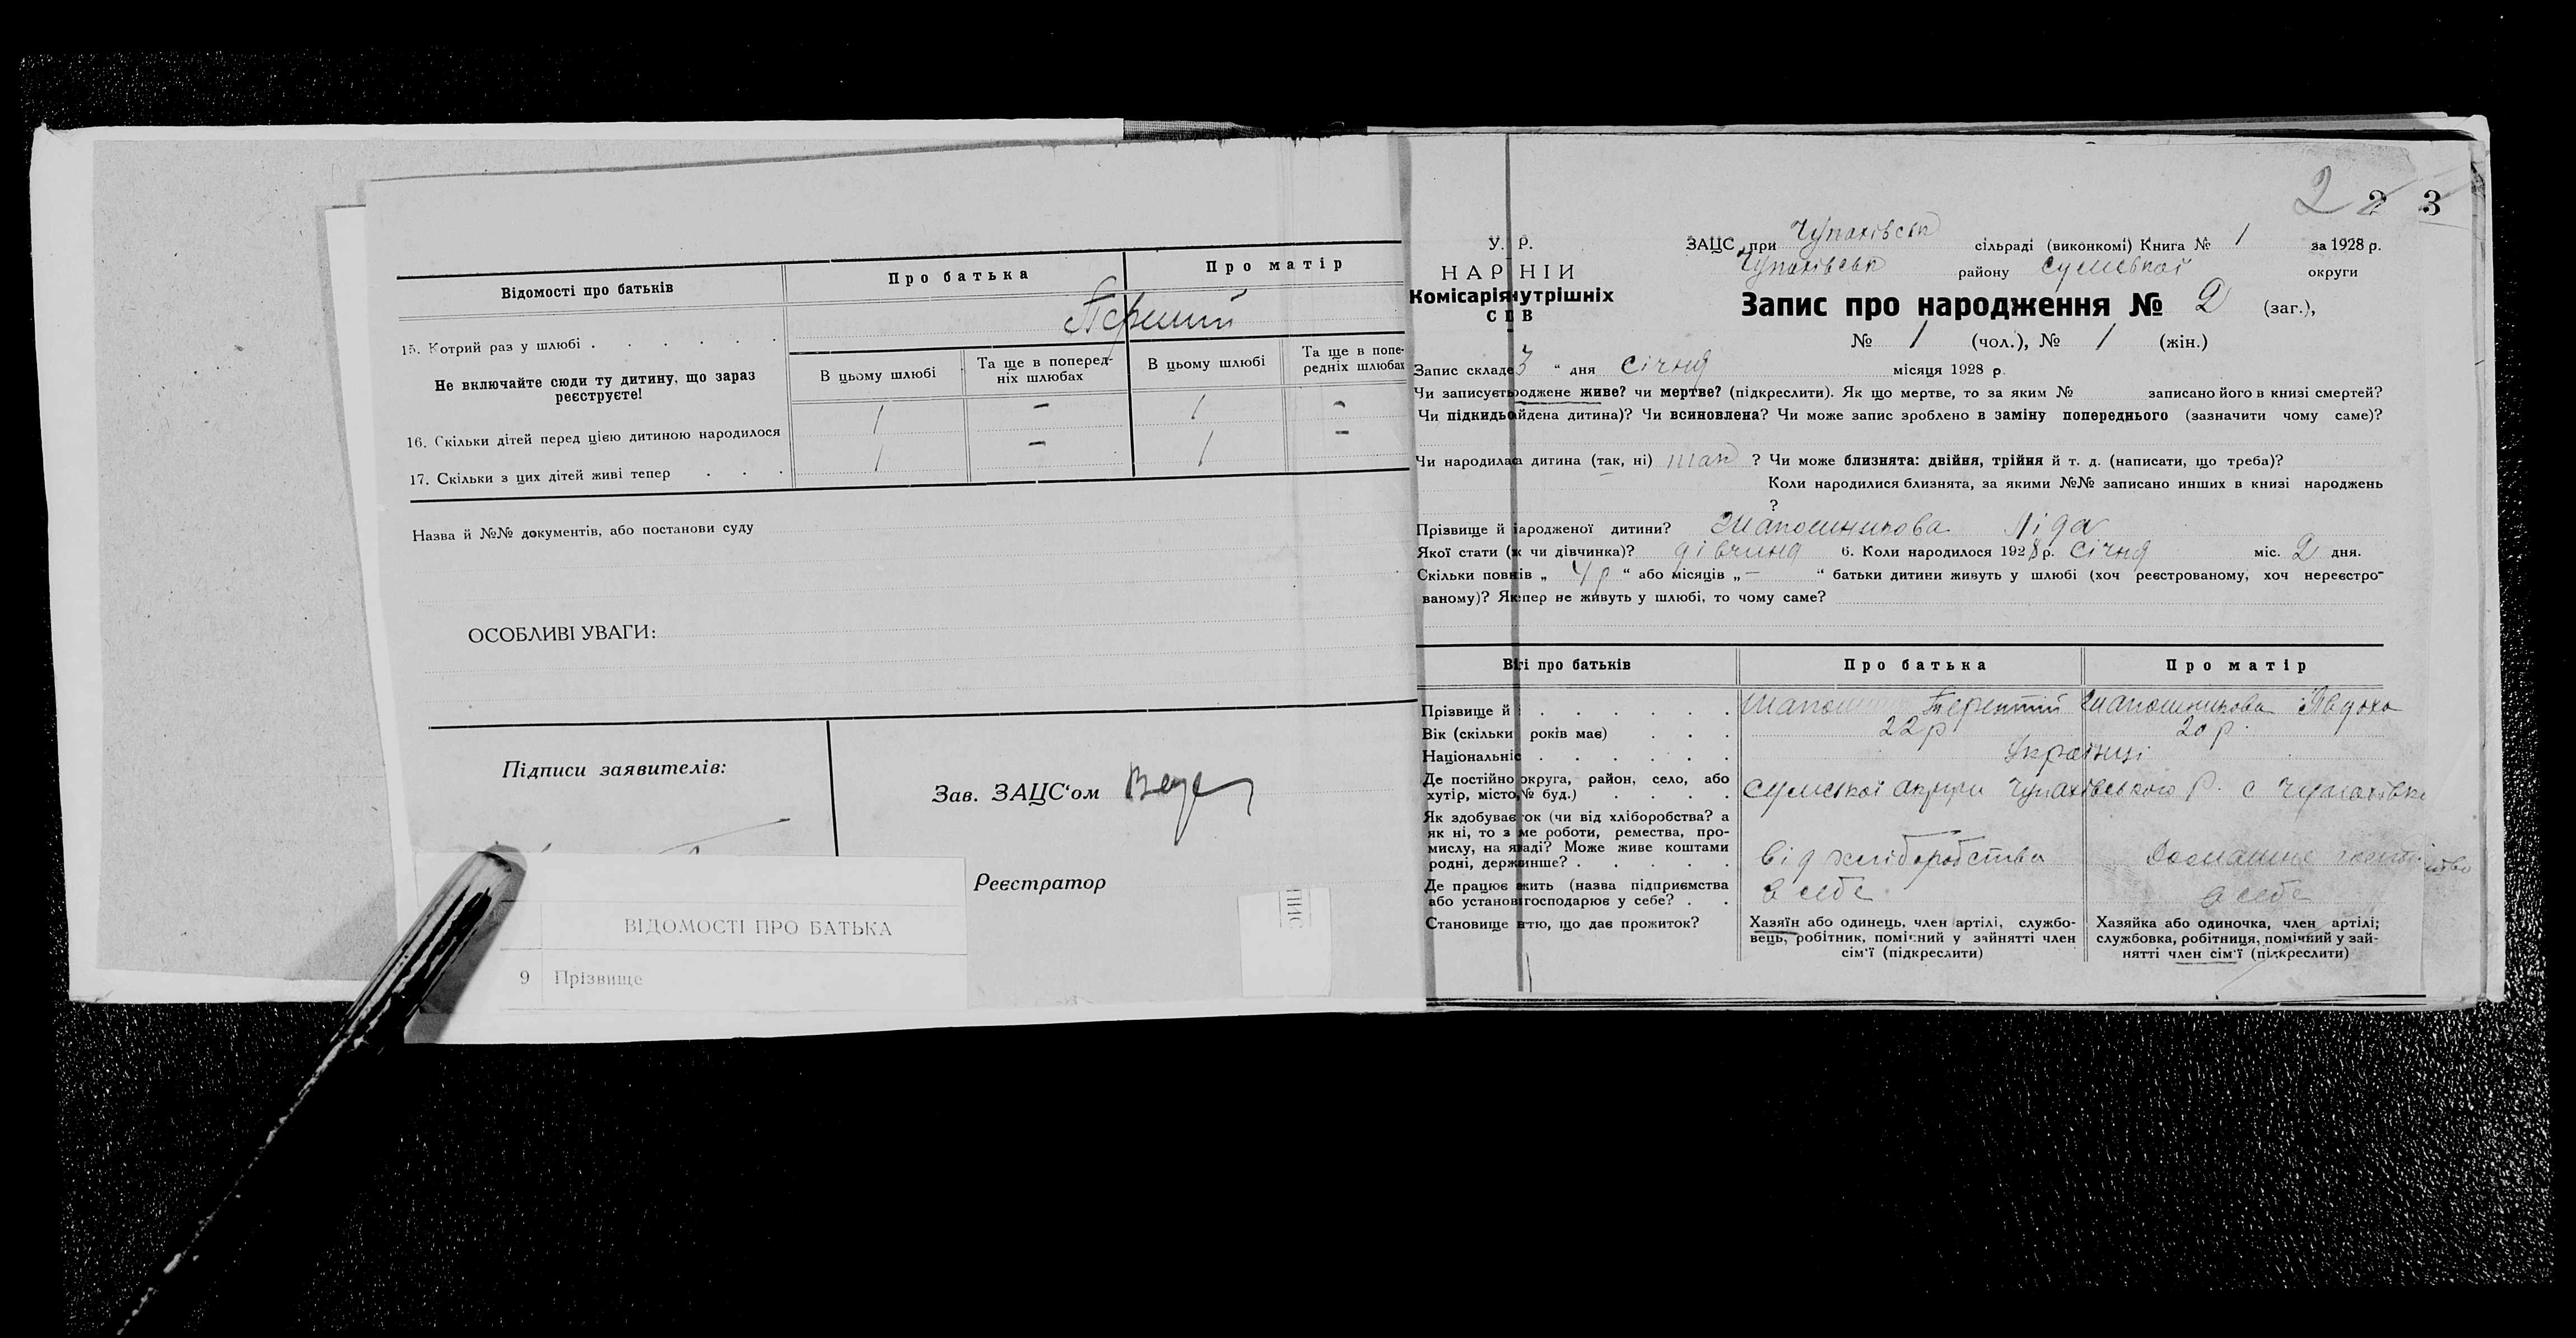 Відомості про батьків
Про батька
Про матір
15. Котрий раз у шлюбі . . . . . .
Перший
Не включайте сюди ту дитину, що зараз
реєструєте!
В цьому шлюбі
Та ще в поперед-
ніх шлюбах
В цьому шлюбі
Та ще в попе-
редніх шлюбах
16. Скільки дітей перед цією дитиною народилося
1 — 1 —
17. Скільки з цих дітей живі тепер . . .
1 — 1 —
Назва й №№ документів, або постанови суду
ОСОБЛИВІ УВАГИ:
Підписи заявителів:
Зав. ЗАЦС‘ом
Реєстратор
ВІДОМОСТІ ПРО БАТЬКА
9 Прізвище
2 2 3
У. Р.
НАР НІИ
Комісарія нутрішніх
С В
ЗАЦС при Чупахівськ сільраді (виконкомі) Книга № 1 за 1928 р.
Чупахівськ району Сумської округи
Запис про народження № 2 (заг.),
№ 1 (чол.), № 1 (жін.)
Запис складе 3 “ дня Січня місяця 1928 р.
Чи записуєть роджене живе? чи мертве? (підкреслити). Як що мертве, то за яким № записано його в книзі смертей?
Чи підкидь йдена дитина)? Чи всиновлена? Чи може запис зроблено в заміну попереднього (зазначити чому саме)?
Чи народилас дитина (так, ні) так ? Чи може близнята: двійня, трійня й т. д. (написати, що треба)?
Коли народилися близнята, за якими №№ записано инших в книзі народжень
?
Прізвище й ародженої дитини? Шапошникова Ліда
Якої стати ( чи дівчинка)? дівчина 6. Коли народилося 1928 р. Січня міс. 2 дня.
Скільки повн ів „ 4 р “ або місяців „ — “ батьки дитини живуть у шлюбі (хоч реєстрованому, хоч нереєстро-
ваному)? Як пер не живуть у шлюбі, то чому саме?
Ві і про батьків
Про батька
Про матір
Прізвище й . . . . . . .
Шапош Терентій
Шапошникова Явдоха
Вік (скільки років має) . . .
22 р
20 р.
Національніс . . . . . .
Українці
Де постійно округа, район, село, або
хутір, місто, № буд.) . . . .
Сумської округи Чупахівського Р. с Чупахівка
Як здобуває ок (чи від хліборобства? а
як ні, то з ме роботи, ремества, про-
мислу, на я аді? Може живе коштами
родні, держ инше? . . . . .
від хліборобства
Домашнє
Де працює жить (назва підприємства
або установ господарює у себе? . .
в себе
в себе
Становище тю, що дає прожиток?
Хазяїн або одинець, член артілі, службо-
вець, робітник, помічний у зайнятті член
сім‘ї (підкреслити)
Хазяйка або одиночка, член артілі;
службовка, робітниця, помічний у зай-
нятті член сім‘ї (підкреслити)